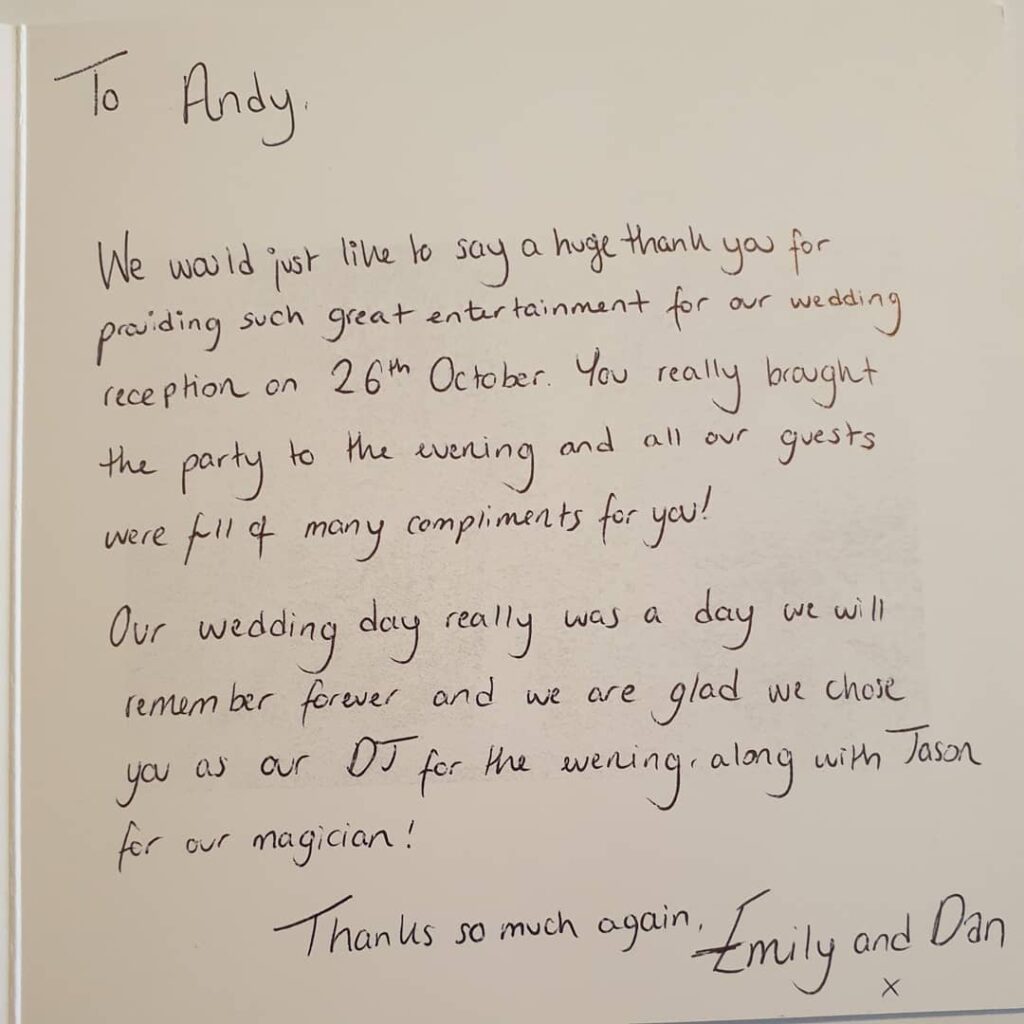 To Andy.
We would just like to say a huge thank you for
providing such great entertainment for our wedding
reception on 26th October. You really brought
the party to the evening and all our guests
were full of many compliments for you!
Our wedding day really was a day we will
remember forever and we are glad we chose
you as our DJ for the evening, along with Jason
for our magician!
Thanks so much again, Emily and Dan
x